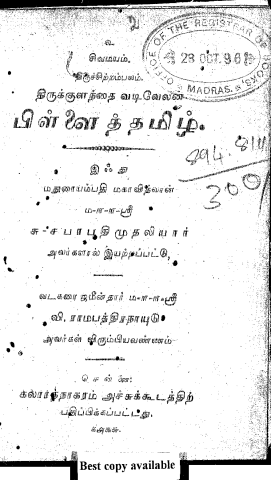 உ
சிவமயம்.
திருச்சிற்றம்பலம்.
திருக்குளத்தை வடிவேலன்
பிள்ளைத்தமிழ்.
இஃது
மதுரையம்பதி மகாவித்வான்
ம-ா-ா-ஸ்ரீ
சு-சபாபதிமுதலியார்
அவர்களால் இயற்றப்பட்டு,
வடகரை ஜமீன்தார் ம-ா-ா-ஸ்ரீ
வி. ராமபத்திரநாயுடு
அவர்கள் விரும்பியவண்ணம்
சென்னை:
கலாரத்நாகரம் அச்சுக்கூடத்திற்
பதிப்பிக்கப்பட்டது.
OFFICE OF THE REGISTRAR OF BOOKS
23 OCT. 96
MADRAS.
894.811
300
Best copy available